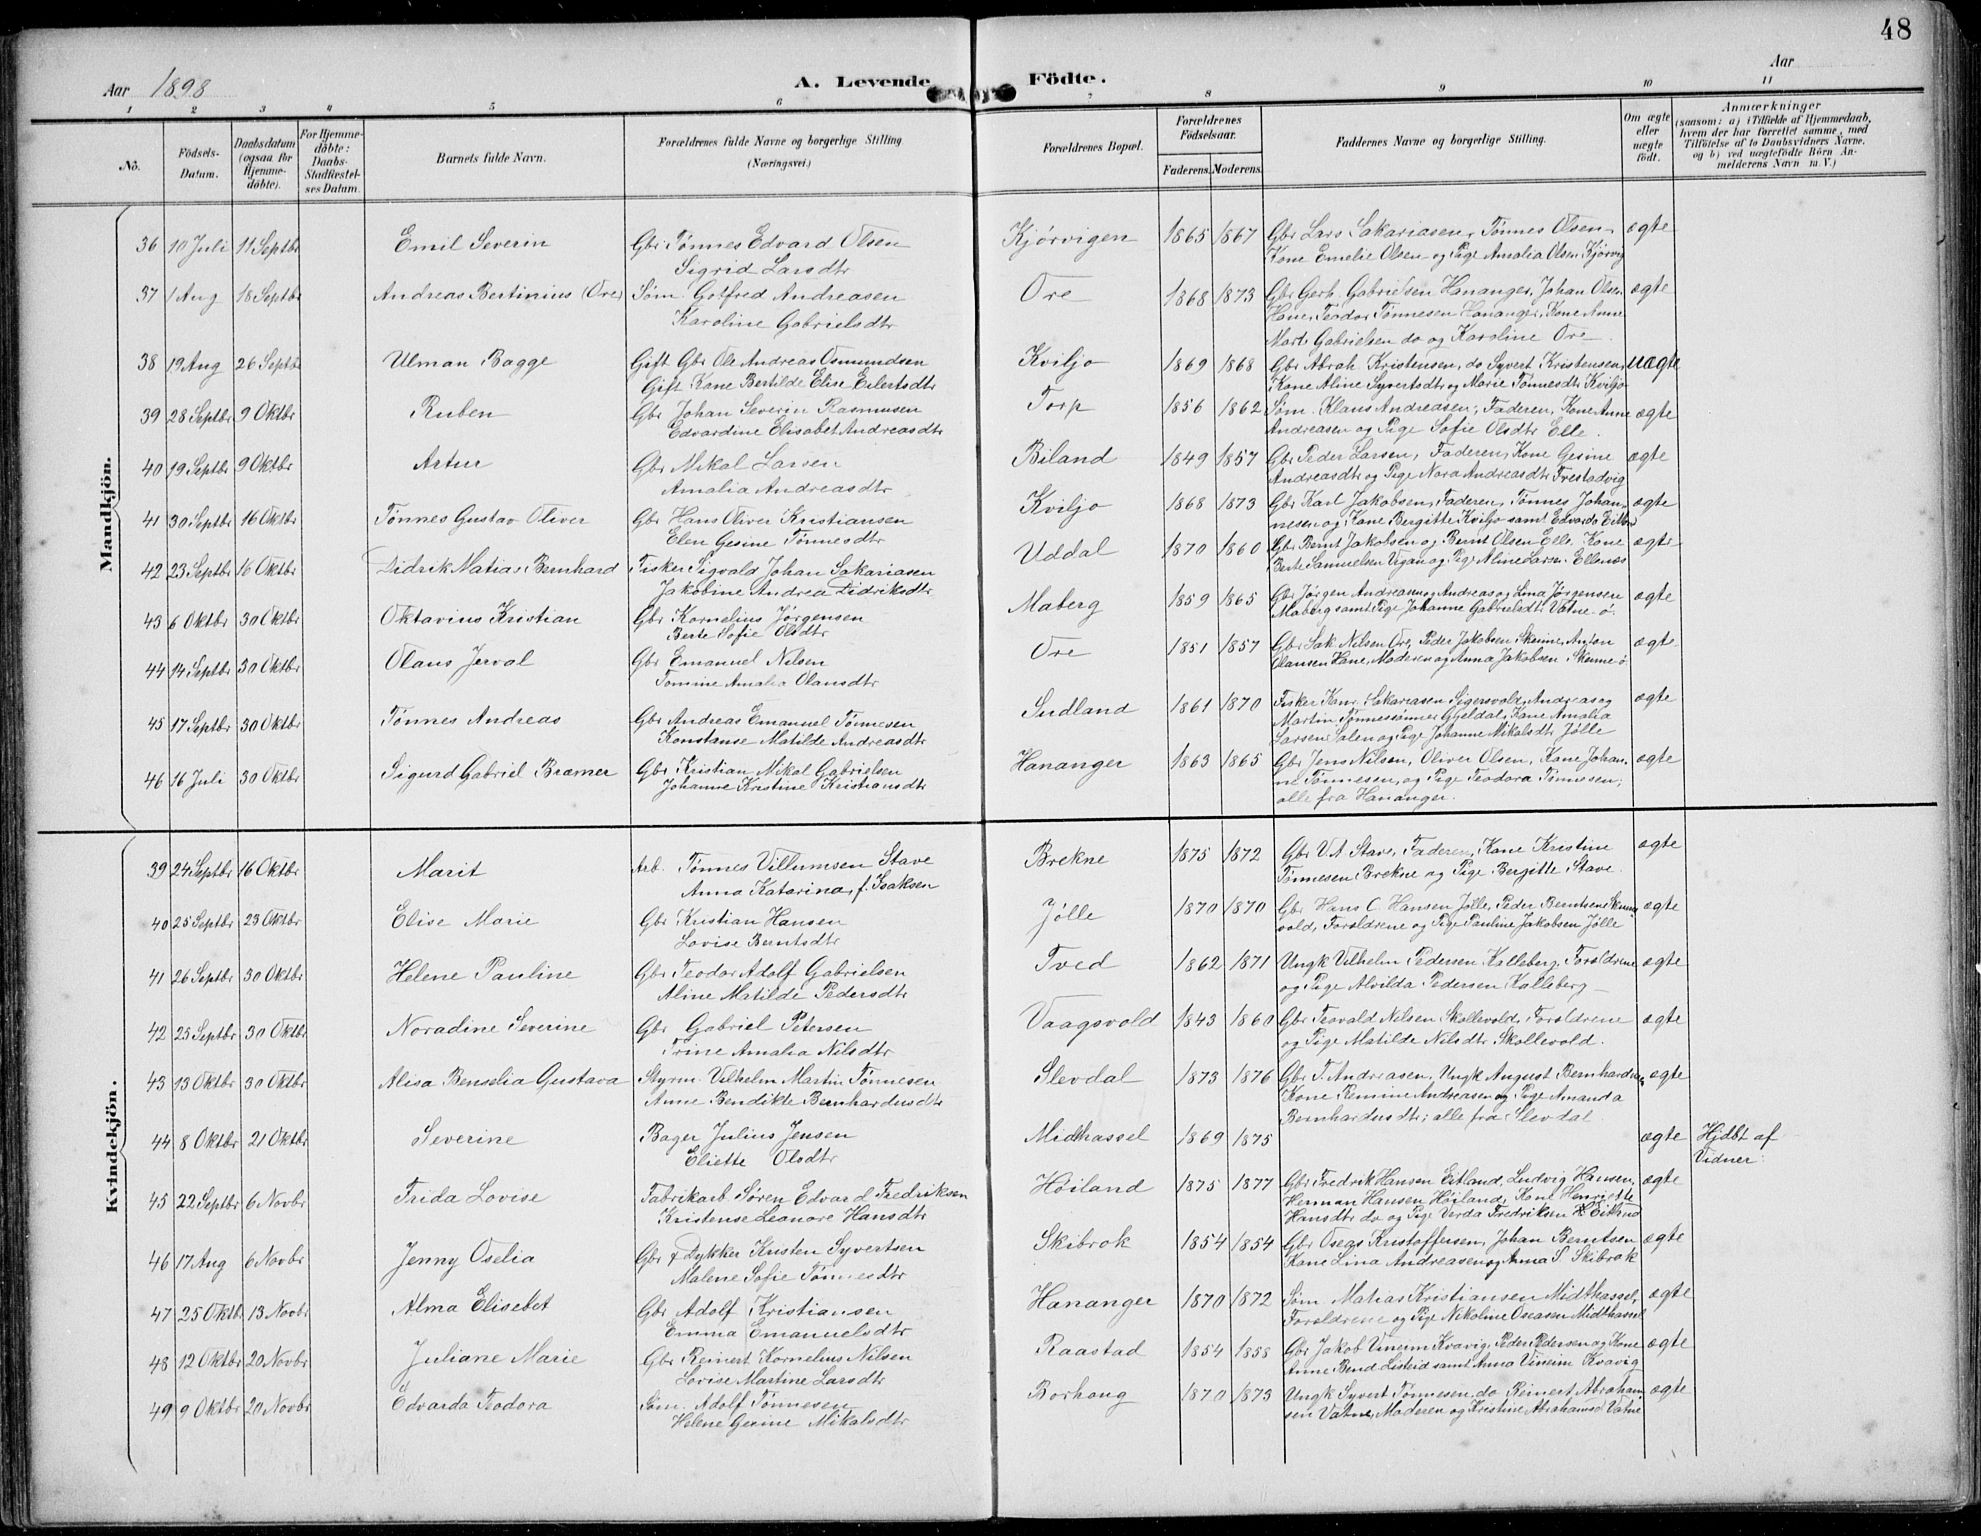 48
Aar 1898
A. Levende Födte.
Aar
1 2 3 4 5 6 7 8 9 10 11
No.
Födsels-Datum.
Daabsdatum (ogsaa for Hjemmedöbte).
For Hjemmedöbte: Daabs-Stadfæstelses Datum.
Barnets fulde Navn.
Forældrenes fulde Navne og borgerlige Stilling (Næringsvei)
Forældrenes Bopæl.
Forældrenes Födselsaar.
Faderens. Moderens.
Faddernes Navne og borgerlige Stilling.
Om ægte eller uægte födt.
Anmærkninger
(saasom: a) i Tilfælde af Hjemmedaab, hvem der har forrettet samme, med Tilföielse af to Daabsvidners Navne, og b) ved uægtefödte Börn Anmelderens Navn m. V.)
Mandkjön.
36 10 Juli 11 Septbr Emil Severin Gbr Tønnes Edvard Olsen Kjørvigen 1865 1867 Gbr Lars Sakariasen, Tønnes Olsen, ægte
Sigrid Larsdtr Kone Emelie Olsen og Pige Amalia Olsen Kjørvig
37 1 Aug 18 Septbr Andreas Bertinius (Ore) Søm. Gotfred Andreasen Ore 1868 1873 Gbr Gerh. Gabrielsen Hananger, Johan Olsen ægte
Karoline Gabrielsdtr Hane, Teodor Tønnesen Hananger, Kone Anne
Mart. Gabrielsen do og Karoline Ore.
38 19 Aug 26 Septbr Ulman Bagge Gift Gbr Ole Andreas Osmundsen Kviljo 1869 1868 Gbr Abrah. Kristensen, do Syvert Kristensen, uægte
Gift Kone Bertilde Elise Eilertsdtr Kone Aline Syvertsdtr og Marie Tønnesdtr Kviljo
39 28 Septbr 9 Oktbr Ruben Gbr Johan Severin Rasmusen Torp 1856 1862 Søm. Klaus Andreasen, Faderen, Kone Anne ægte
Edvardine Elisabet Andreasdtr Andreasen og Pige Sofie Olsdtr Elle.
40 19 Septbr 9 Oktbr Artur Gbr Mikal Larsen Biland 1849 1857 Gbr Peder Larsen, Faderen, Kone Gesine ægte
Amalia Andreasdtr Andreasdtr og Pige Nora Andreasdtr Frestadvig
41 30 Septbr 16 Oktbr Tønnes Gustav Oliver Gbr Hans Oliver Kristiansen Kviljo 1868 1873 Gbr Karl Jakobsen, Faderen, Tønnes Johan- ægte
Elen Gesine Tønnesdtr nesen og Kone Bergitte Kviljo samt Edvarda
42 23 Septbr 16 Oktbr Didrik Matias Bernhard Fisker Sigvald Johan Sakariasen Uddal 1870 1860 Gbr Bernt Jakobsen og Bernt Olsen Elle. Kone ægte
Jakobine Andrea Didriksdtr Berte Samuelsen Vigan og Pige Aline Larsen Ellenæs
43 6 Oktbr 30 Oktbr Oktavius Kristian Gbr Kornelius Jørgensen Maberg 1859 1865 Gbr Jørgen Andreasen og Andreas og Lina Jørgensen ægte
Berte Sofie Olsdtr Maberg samt Pige Johanne Gabrielsdtr Vatne-ø.
44 14 Septbr 30 Oktbr Olaus Jerval Gbr Emanuel Nilsen Ore 1851 1857 Gbr Sak. Nilsen Ore, Peder Jakobsen Skeime, Anton ægte
Tomine Amalia Olausdtr Olausen Hane, Moderen og Anna Jakobsen Skeime-ø
45 17 Septbr 30 Oktbr Tønnes Andreas Gbr Andreas Emanuel Tønnesen Sudland 1861 1870 Fisker Konr. Sakariasen Sigersvold, Andreas og ægte
Konstanse Matilde Andreasdtr Martin Tønnessønner Gjeldal, Kone Amalia
Larsen Salen og Pige Johanne Mikalsdtr Jølle
46 16 Juli 30 Oktbr Sigurd Gabriel Bræmer Gbr Kristian Mikal Gabrielsen Hananger 1863 1865 Gbr Jens Nilsen, Oliver Olsen, Kone Johan- ægte
Johanne Kristine Kristiansdtr ne Tønnesen, og Pige Teodora Tønnesen,
alle fra Hananger.
Kvindekjön.
39 24 Septbr 16 Oktbr Marit Arb. Tønnes Villumsen Stave Brekne 1875 1872 Gbr V.A. Stave, Faderen, Kone Kristine ægte
Anna Katarina, f. Isaksen Tønnesen Brekne og Pige Bergitte Stave.
40 25 Septbr 23 Oktbr Elise Marie Gbr Kristian Hansen Jølle 1870 1870 Gbr Hans C. Hansen Jølle, Peder Berntsen ægte
Lovise Berntsdtr vold, Forældrene og Pige Pauline Jakobsen Jølle
41 26 Septbr 30 Oktbr Helene Pauline Gbr Teodor Adolf Gabrielsen Tved 1862 1871 Ungk Vilhelm Pedersen Kalleberg, Forældrene ægte
Aline Matilde Pedersdtr og Pige Alvilda Pedersen Kalleberg
42 25 Septbr 30 Oktbr Noradine Severine Gbr Gabriel Petersen Vaagsvold 1843 1860 Gbr Teovald Nilsen Skollevold, Forældrene ægte
Trine Amalia Nilsdtr og Pige Matilde Nilsdtr Skollevold.
43 13 Oktbr 30 Oktbr Alisa Benselia Gustava Styrm. Vilhelm Martin Tønnesen Slevdal 1873 1876 Gbr T. Andreasen, Ungk August Bernhardsen, ægte
Anne Bendikte Bernhardusdtr Kone Remine Andreasen og Pige Amanda
Bernhardusdtr; alle fra Slevdal
44 8 Oktbr 21 Oktbr Severine Bager Julius Jensen Midthassel 1869 1875 ægte Hjdbt af
Eliette Olsdtr Vidner.
45 22 Septbr 6 Novbr Frida Lovise Fabrikarb Søren Edvard Fredriksen Høiland 1875 1877 Gbr Fredrik Hansen Eitland, Ludvig Hansen, ægte
Kristense Leonore Hansdtr Herman Hansen Høiland, Kone Henriette
Hansdtr do og Pige Verda Fredriksen
46 17 Aug 6 Novbr Jenny Oselia Gbr & Dykker Kristen Syvertsen Skibrok 1854 1854 Gbr Oseas Kristoffersen, Johan Berntsen ægte
Malene Sofie Tønnesdtr Kone Lina Andreasen og Anna S. Skibrok
47 25 Oktbr 13 Novbr Alma Elisebet Gbr Adolf Kristiansen Hananger 1870 1872 Søm Matias Kristiansen Midthassel, ægte
Emma Emanuelsdtr Forældrene og Pige Nikoline Oseasen Midthassel
48 12 Oktbr 20 Novbr Juliane Marie Gbr Reinert Kornelius Nilsen Raastad 1854 1858 Gbr Jakob Vineim Kvavig, Peder Pedersen og Kone ægte
Lovise Martine Larsdtr Anne Bend. Listeid samt Anna Vineim Kvavig
49 9 Oktbr 20 Novbr Edvarda Teodora Søm. Adolf Tønnesen Borhaug 1870 1873 Ungk Syvert Tønnesen, do Reinert Abraham- ægte
Helene Gesine Mikalsdtr sen Vatne, Moderen og Kristine Abrahamsd Vatne